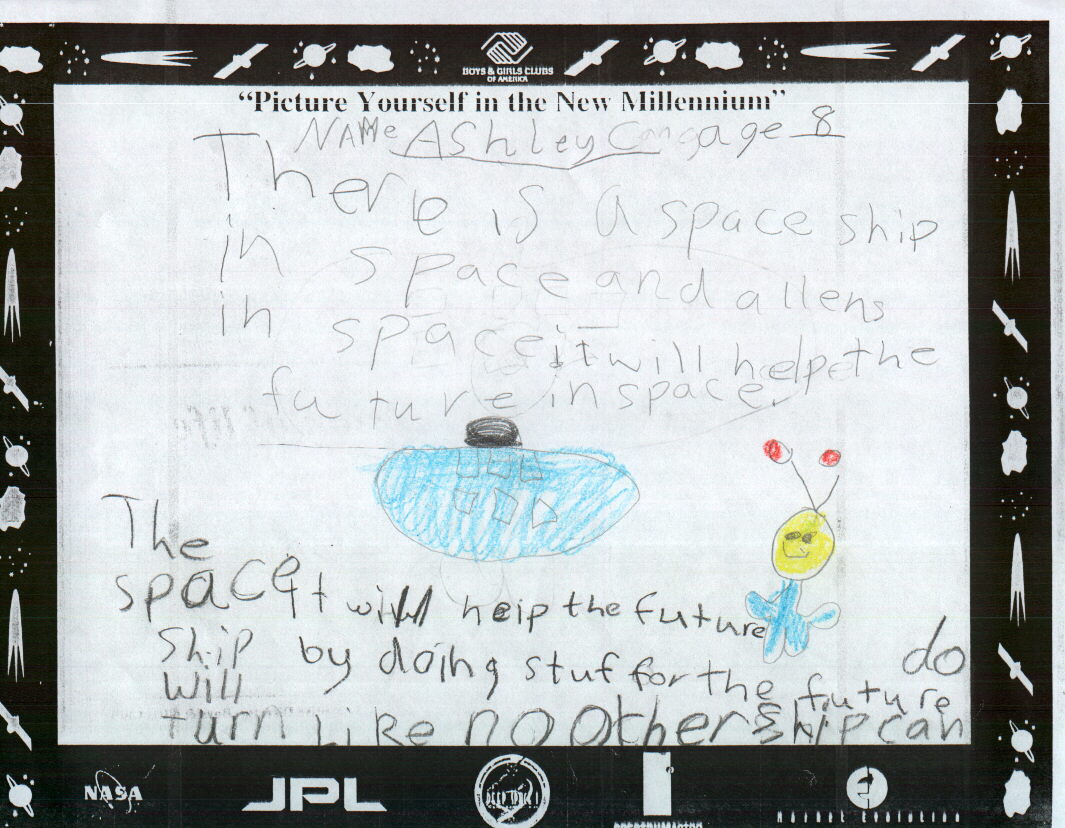 BOYS & GIRLS CLUBS
OF AMERICA
"Picture Yourself in the New Millennium"
NAMe Ashley age 8
There is a space ship
in space and aliens
in space it will help the
future in space.
The
space it will help the future
Ship by doing stuf for the future
will do
turn Like no other ship can
NASA
JPL
DEEP SPACE 1